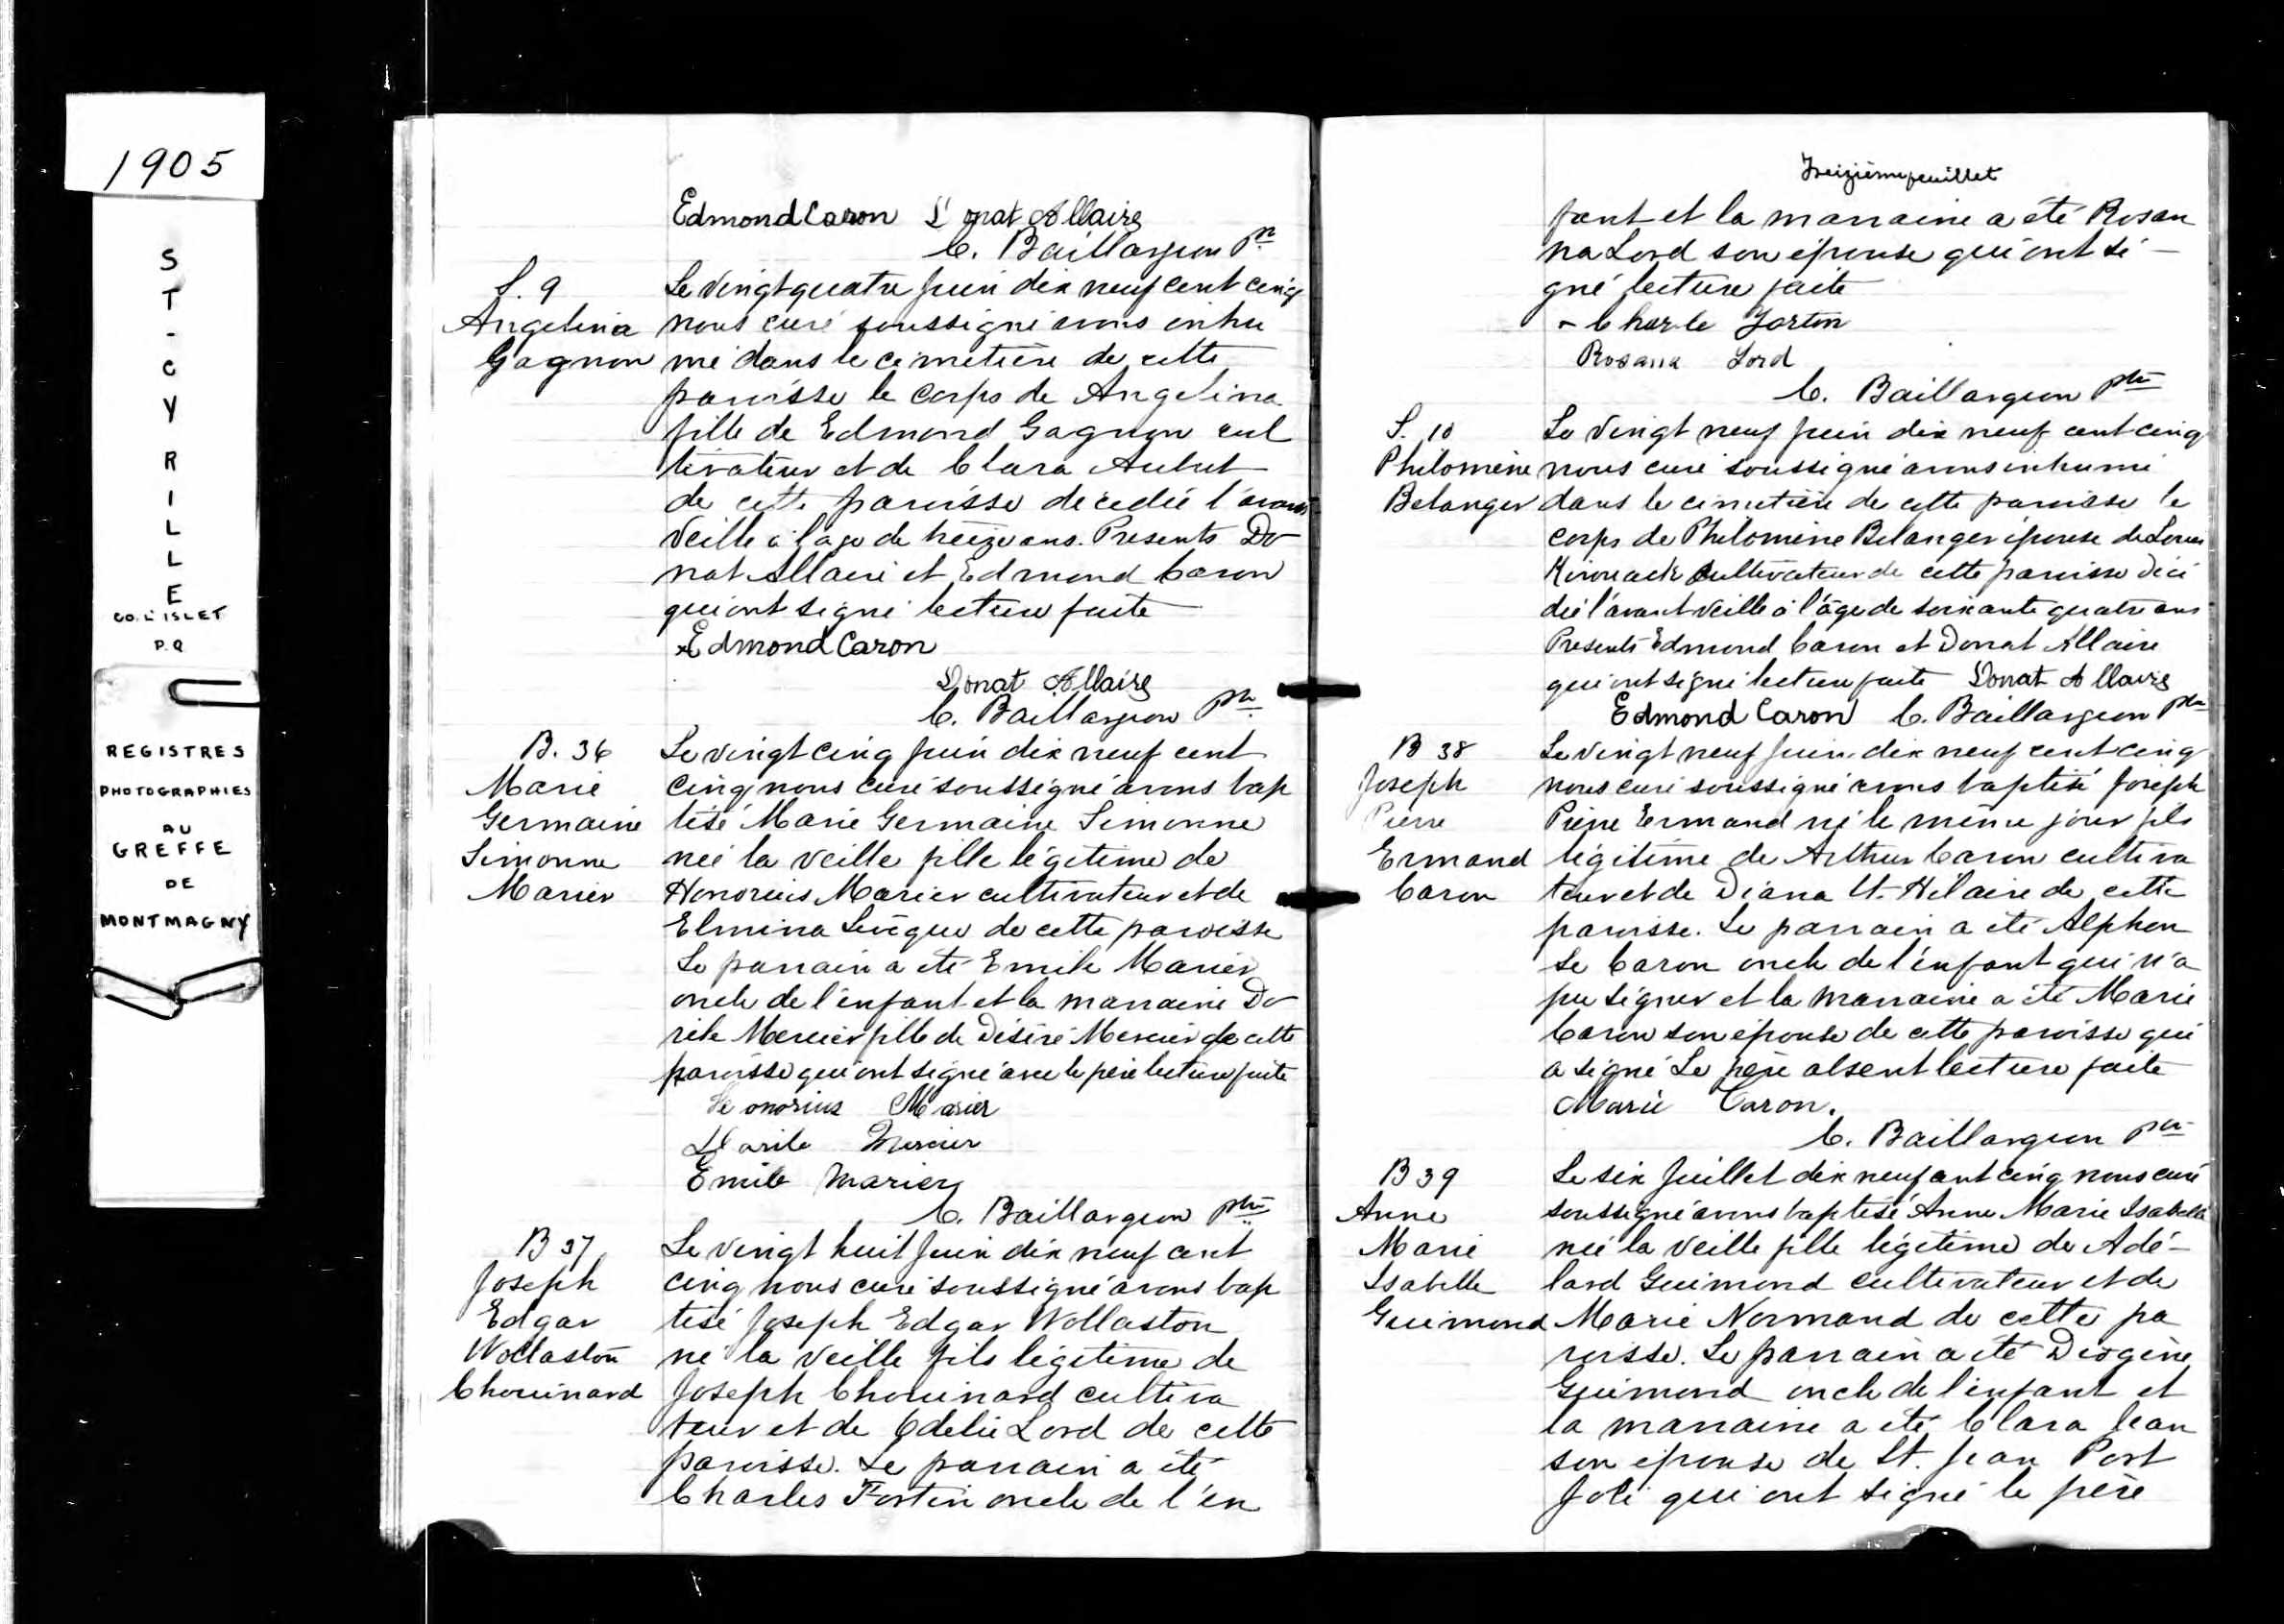 1905
ST-CYRILLE
CO. L'ISLET
P.Q
REGISTRES
PHOTOGRAPHIES
AU
GREFFE
DE
MONTMAGNY
Edmond Caron Donat Allaire
C. Baillargeon ptre
S. 9
Angelina
Gagnon
Le vingt quatre juin dix neuf cent cinq
nous curé soussigné avons inhu
mé dans le cimetière de cette
paroisse le corps de Angelina
fille de Edmond Gagnon cul
tivateur et de Clara Aubut
de cette paroisse décédée l'avant
veille à l'age de treize ans. Presents Do
nat Allaire et Edmond Caron
qui ont signé lecture faite
Edmond Caron
Donat Allaire
C. Baillargeon ptre
B. 36
Marie
Germaine
Simonne
Marier
Le vingt cinq juin dix neuf cent
cinq nous curé soussigné avons bap
tisé Marie Germaine Simonne
née la veille fille légitime de
Honorius Marier cultivateur et de
Elmina Levêque de cette paroisse
Le parrain a été Emile Marier
oncle de l'enfant et la marraine Do
rile Mercier fille de Désiré Mercier de cette
paroisse qui ont signé avec le père lecture faite
Honorius Marier
Dorile Mercier
Emile Marier
C. Baillargeon ptre
B 37
Joseph
Edgar
Wollaston
Chouinard
Le vingt huit juin dix neuf cent
cinq nous curé soussigné avons bap
tisé Joseph Edgar Wollaston
né la veille fils légitime de
Joseph Chouinard cultiva
teur et de Odelie Lord de cette
paroisse. Le parrain a été
Charles Fortin oncle de l'en
Treizième feuillet
fant et la marraine a été Rosan
na Lord son épouse qui ont si-
gné lecture faite
Charle Fortin
Rosana Lord
C. Baillargeon ptre
S. 10
Philomène
Belanger
Le vingt neuf juin dix neuf cent cinq
nous curé soussigné avons inhumé
dans le cimetière de cette paroisse le
corps de Philomène Belanger épouse de Louis
Kirouack cultivateur de cette paroisse décé
dée l'avant veille à l'âge de soixante quatre ans
Presents Edmond Caron et Donat Allaire
qui ont signé lecture faite Donat Allaire
Edmond Caron C. Baillargeon ptre
B 38
Joseph
Pierre
Ermand
Caron
Le vingt neuf juin dix neuf cent cinq
nous curé soussigné avons baptisé Joseph
Pierre Ermand né le même jour fils
légitime de Arthur Caron cultiva
teur et de Diana St. Hilaire de cette
paroisse. Le parrain a été Alphon
se Caron oncle de l'enfant qui n'a
pu signer et la marraine a été Marie
Caron son épouse de cette paroisse qui
a signé Le père absent lecture faite
Marie Caron.
C. Baillargeon ptre
B 39
Anne
Marie
Isabelle
Guimond
Le six Juillet dix neuf cent cinq nous curé
soussigné avons baptisé Anne Marie Isabelle
née la veille fille légitime de Adé-
lard Guimond cultivateur et de
Marie Normand de cette pa
roisse. Le parrain a été Diogène
Guimond oncle de l'enfant et
la marraine a été Clara Jean
son épouse de St. Jean Port
Joli qui ont signé le père